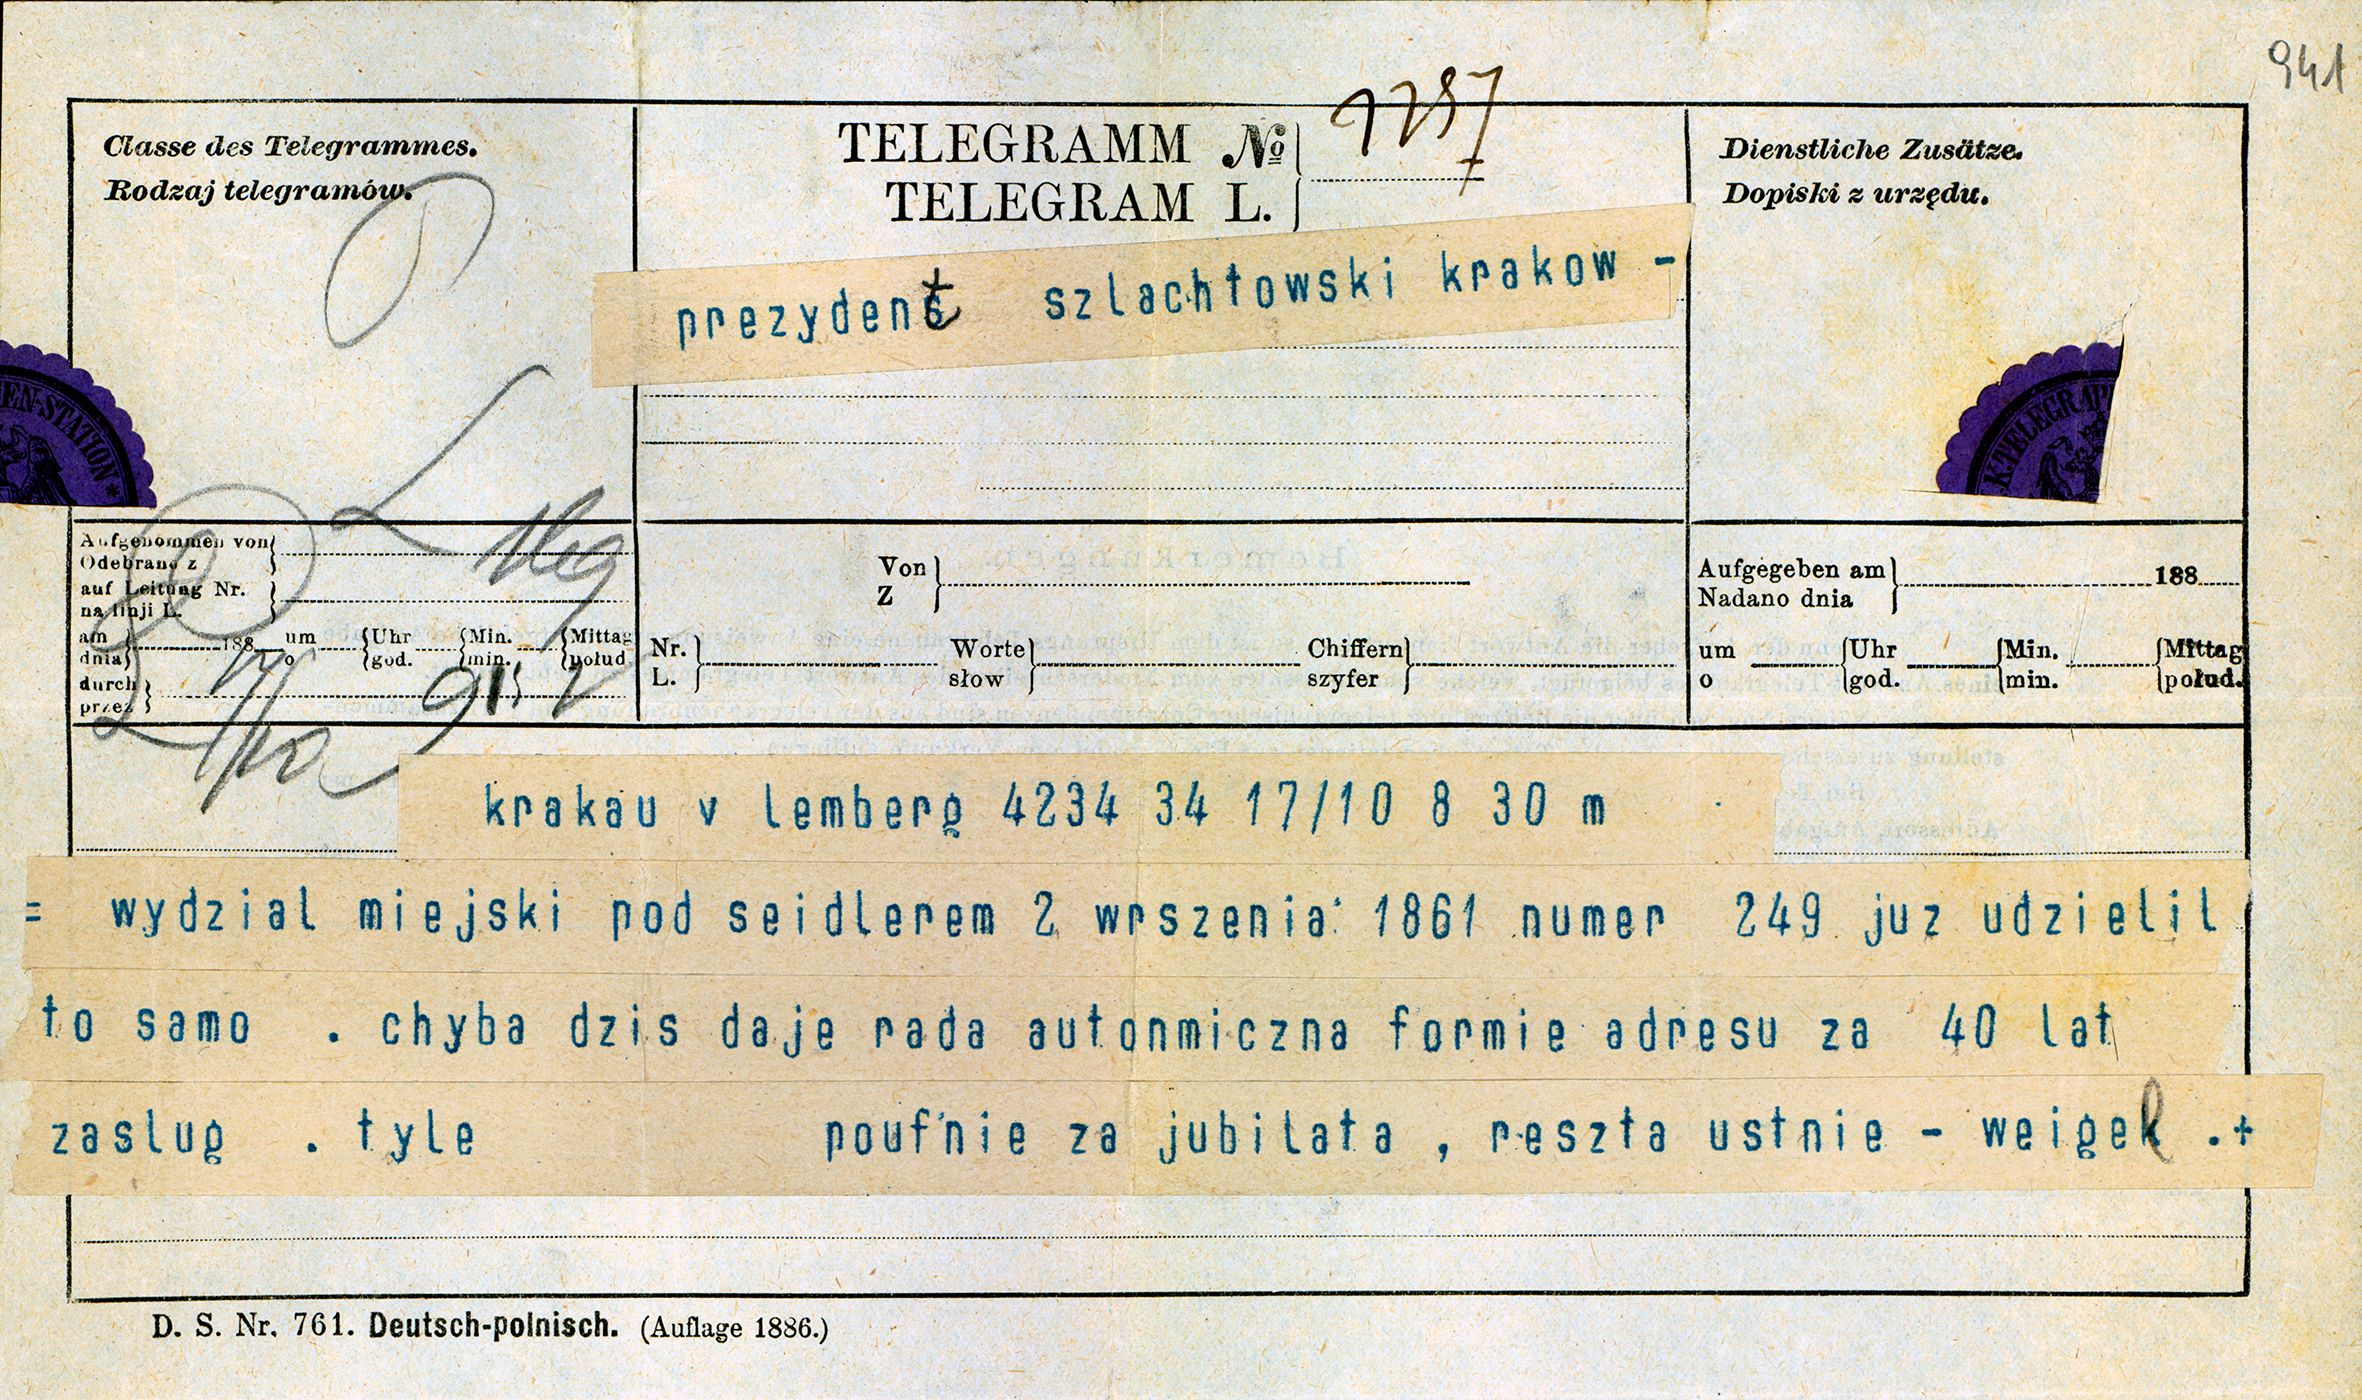 941
Classe des Telegrammes.
Rodzaj telegramów.
TELEGRAMM No
TELEGRAM L.
Dienstliche Zusätze.
Dopiski z urzędu.
prezydent szlachtowski krakow -
EN-STATION *
K TELEGRAP
Aufgenommen von
Odebrano z
auf Leitung Nr.
na linji L.
am 188 um Uhr Min. Mittag
dnia o god. min. połud
durch
przez
Von
Z
Nr. Worte Chiffern
L. słow szyfer
Aufgegeben am 188
Nadano dnia
um Uhr Min. Mittag
o god. min. połud.
krakau v lemberg 4234 34 17/10 8 30 m
= wydzial miejski pod seidlerem 2 wrszenia 1861 numer 249 juz udzielil
to samo . chyba dzis daje rada autonmiczna formie adresu za 40 lat
zaslug . tyle poufnie za jubilata , reszta ustnie - weigel .+
D. S. Nr. 761. Deutsch-polnisch. (Auflage 1886.)